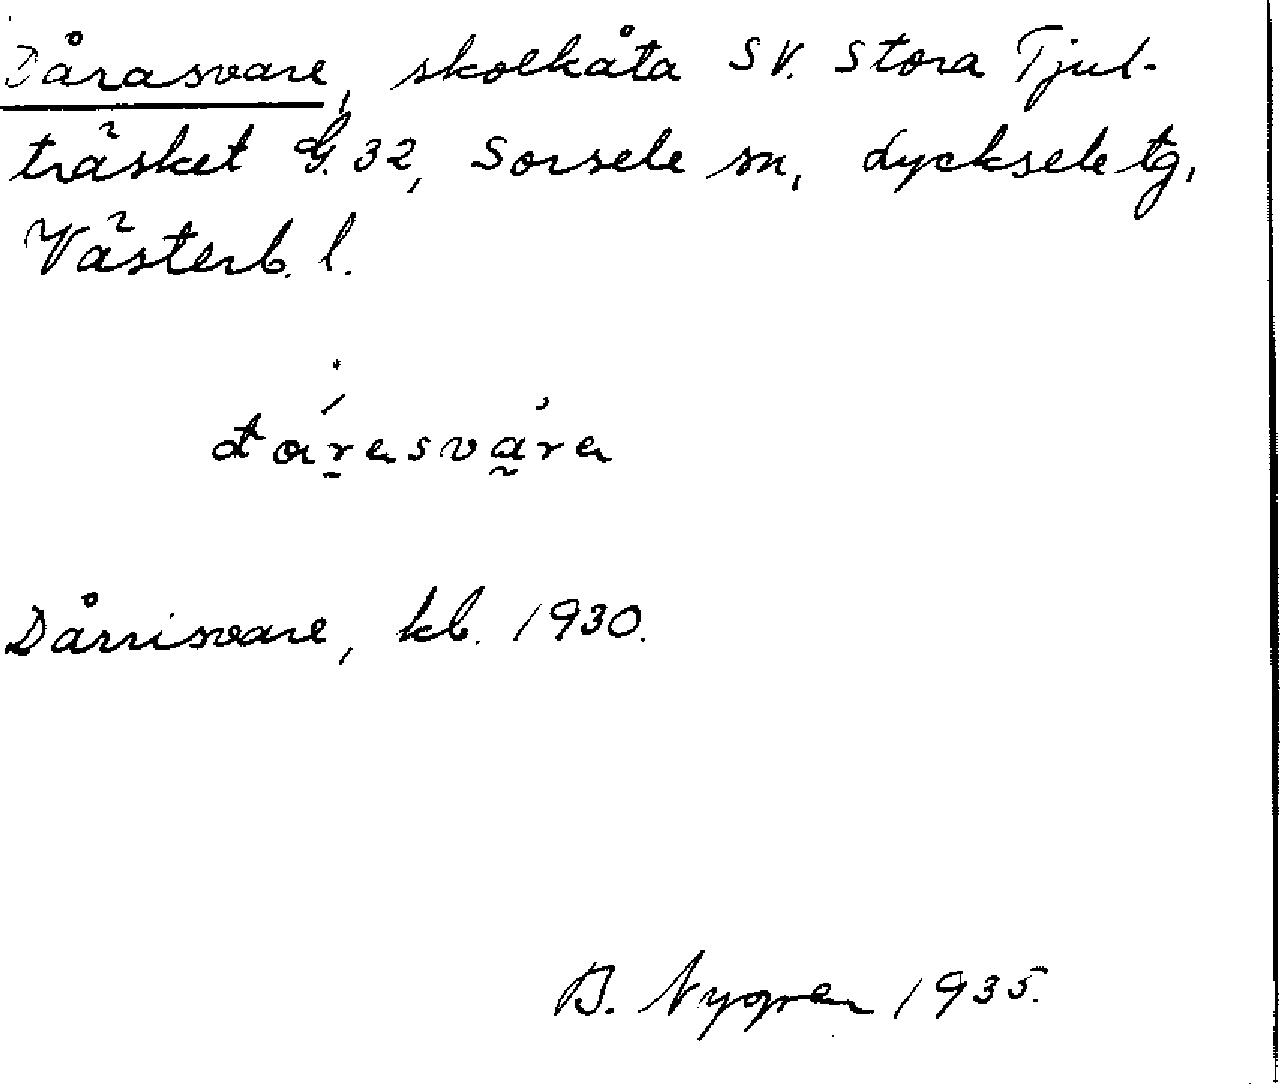 Dårasvare, skolkåta SV. Stora Tjul-
träsket G. 32, Sorsele sn, Lycksele tg,
Västerb. l.
dårasvàra
Dårrisvare, kb. 1930.
B. Nygren 1935.